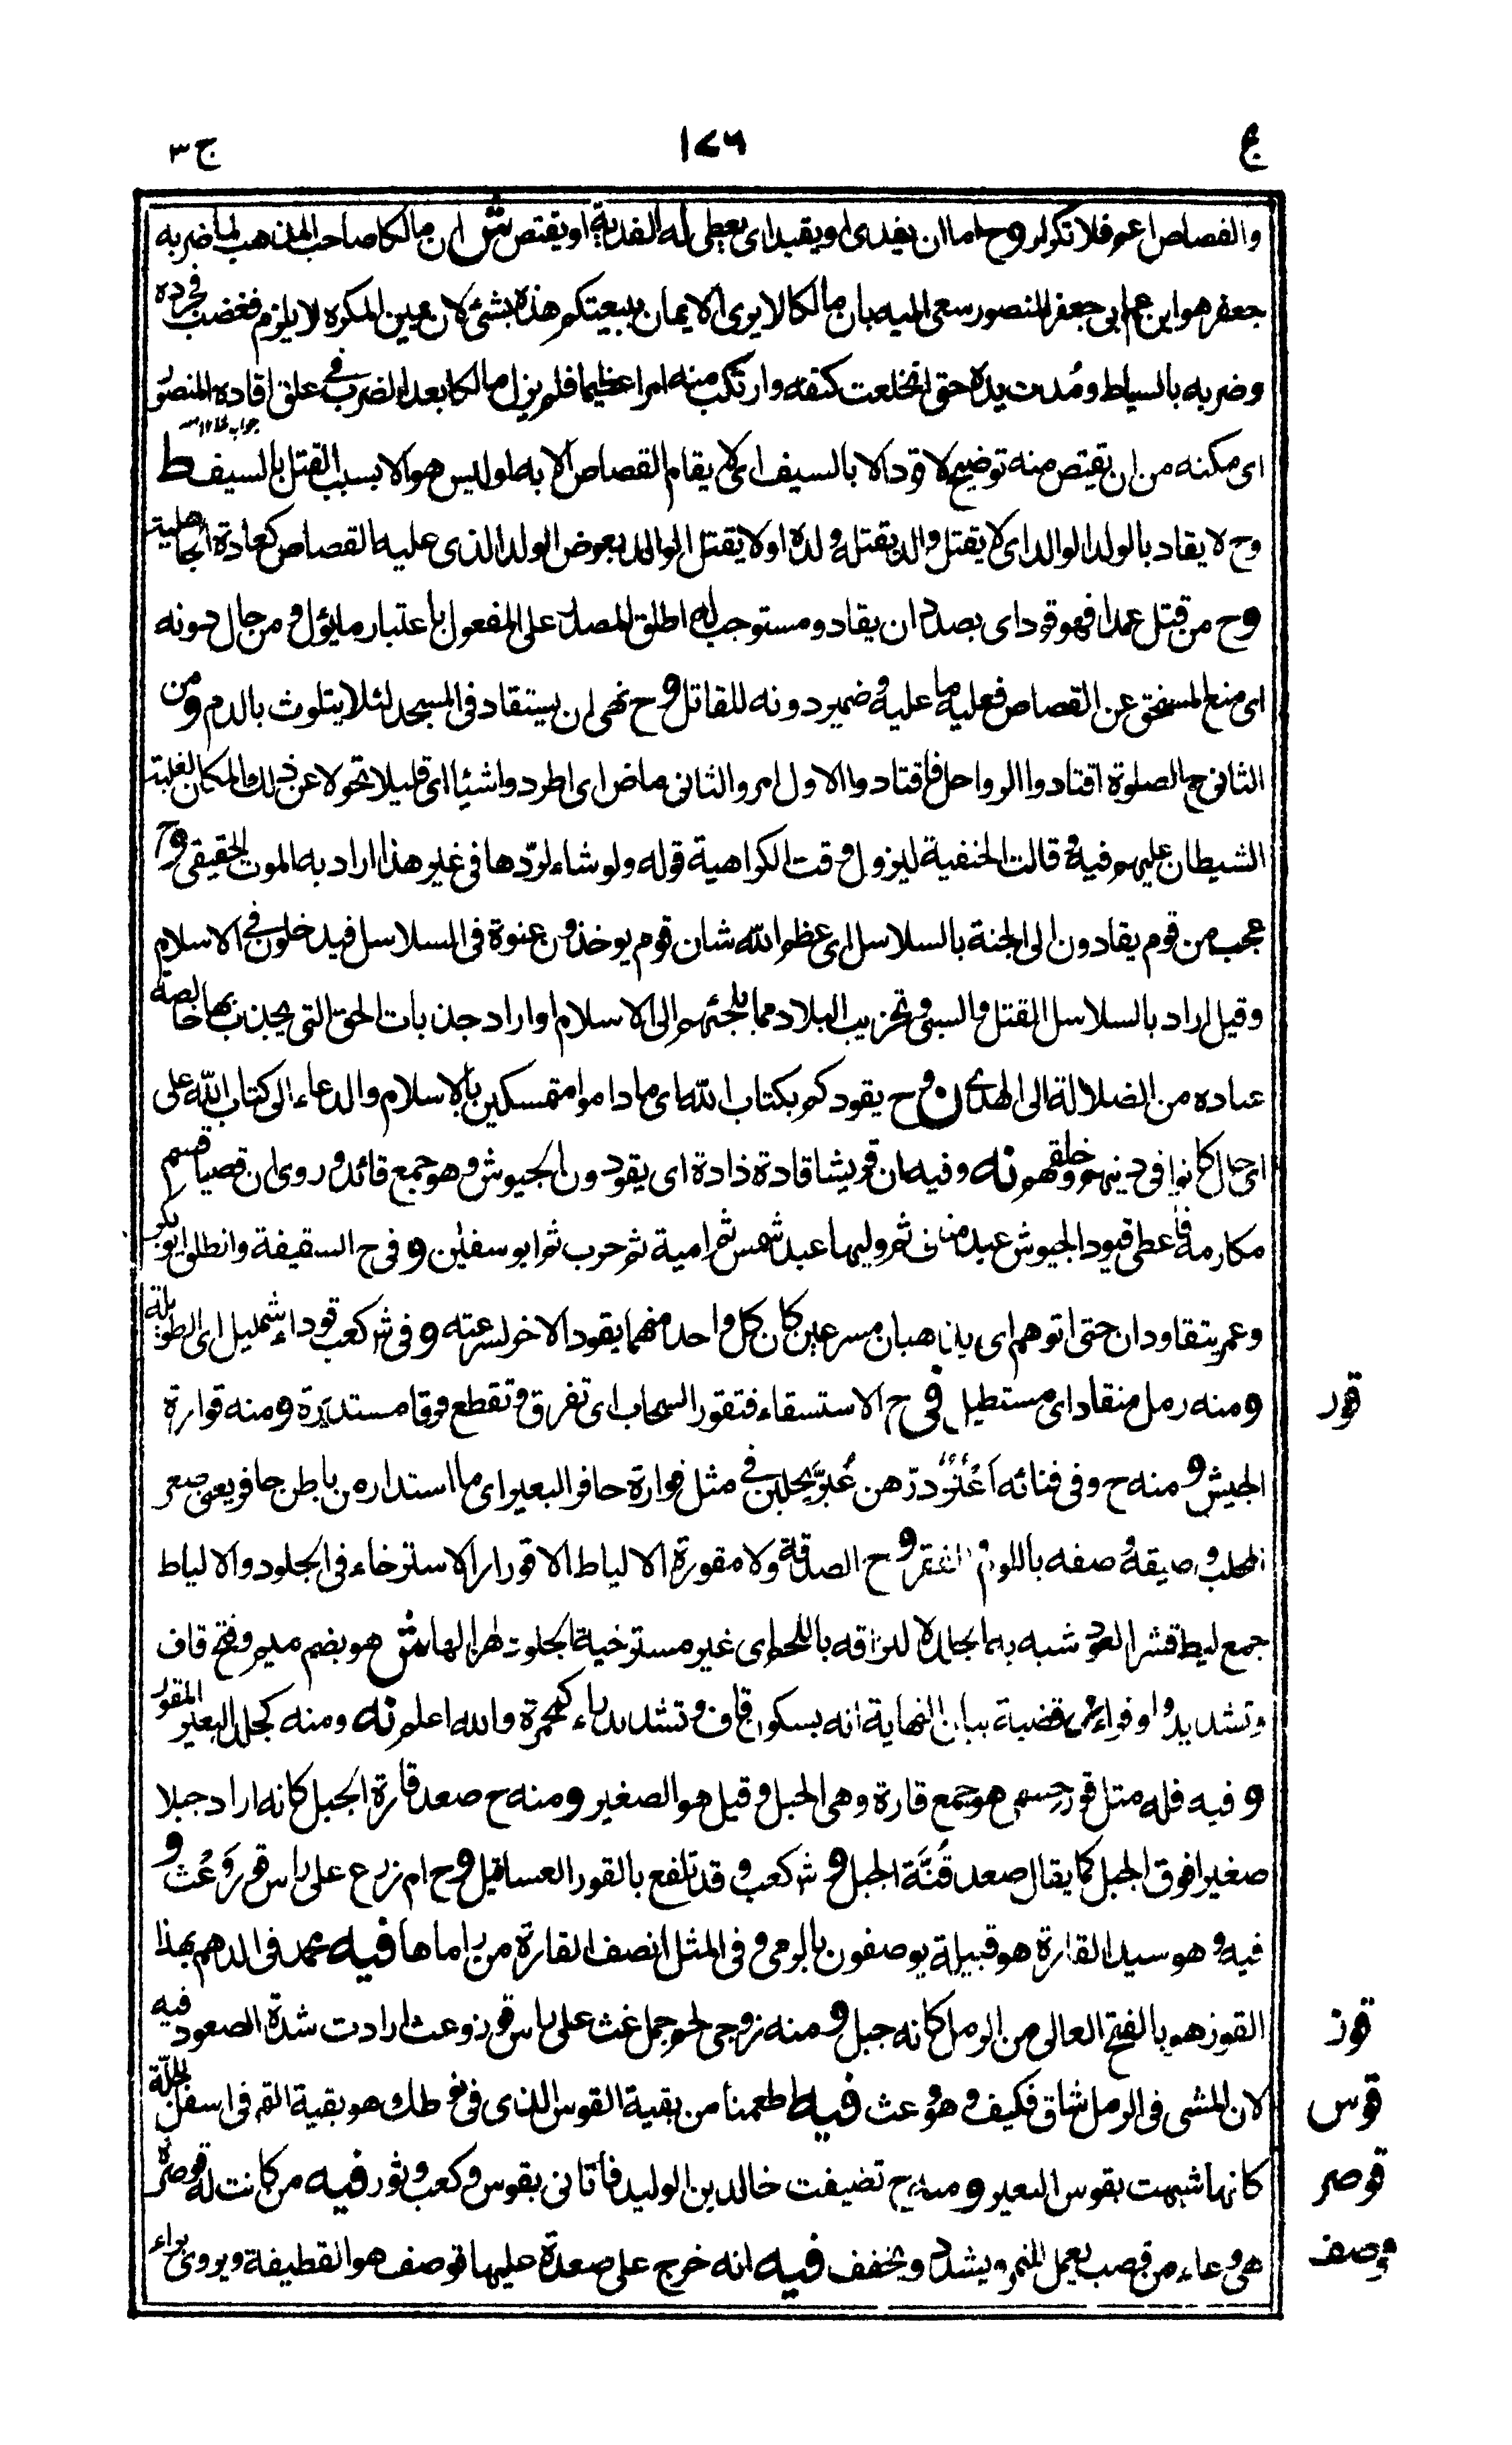 ج ١٧٦ ج ٣
والقصاص اعم فلا تكرار وح اما ان يفدى او يقيد اى يعطى له الفدية او يقتص ش ان مالكا صاحب المذهب لما ضربه
جعفر هو ابن عم ابى جعفر المنصور سعى اليه بان مالكا لا يرى الايمان ببيعتكم هذه بشئ لان يمين المكره لا يلزم فغضب فجرده
وضربه بالسياط ومُدت يده حتى انخلعت كتفه وارتكب منه امرا عظيما فلم يزل مالكا بعد الضرب فى علو اقاده المنصور
اى مكنه من ان يقتص منه توضيح لا قود الا بالسيف اى لا يقام القصاص الا به او ليس هو الا بسبب القتل بالسيف ط
وح لا يقاد بالولد الوالد اى لا يقتل والد بقتله ولده او لا يقتل الوالد بعوض الولد الذى عليه القصاص كعادة الجاهلية
وح من قتل عمدا فهو قود اى بصدد ان يقاد ومستوجب له اطلق المصدر على المفعول باعتبار ما يؤل ومن حال دونه
اى منع المستحق عن القصاص فعليه ما عليه وضمير دونه للقاتل وح نهى ان يستقاد فى المسجد لئلا يتلوث بالدم ومن
الثانى ح الصلوة اقتادوا الرواحل فاقتادوا الاول امر والثانى ماض اى اطردوا شيئا اى قليلا تحولا عن ذلك المكان لغلبة
الشيطان عليهم فيه وقالت الحنفية ليزول وقت الكراهية قوله ولو شاء لردها فى غير هذا اراد به الموت الحقيقى وح
عجب من قوم يقادون الى الجنة بالسلاسل اى عظم الله شان قوم يوخذون عنوة فى السلاسل فيدخلون فى الاسلام
وقيل اراد بالسلاسل القتل والسبى وتخريب البلاد مما يلجئهم الى الاسلام او اراد جذبات الحق التى يجذب بها خالصة
عباده من الضلالة الى الهدى ن وح يقودكم بكتاب الله اى ما داموا متمسكين بالاسلام والدعاء الى كتاب الله على
اى حال كانوا فى دينهم وخلقهم نه وفيه ان قريشا قادة ذادة اى يقودون الجيوش وهو جمع قائد وروى ان قصيا قسم
مكارمه فاعطى قود الجيوش عبد مناف ثم وليها عبد شمس ثم امية ثم حرب ثم ابو سفين و فى ح السقيفة وانطلق ابوبكر
وعمر يتقاودان حتى اتوهم اى يذهبان مسرعين كان كل واحد منهما يقود الاخر لسرعته و فى ش كعب قوداء شمليل اى الطويلة
ومنه رمل منقاد اى مستطيل فى ح الاستسقاء فتقور السحاب اى تفرق وتقطع فرقا مستديرة ومنه قوارة
قور
الجيش ومنه ح وفى فنائه اَعْنُز دَرّهن غُبر يحلبن فى مثل قوارة حافر البعير اى ما استدار من باطن حافر يعنى صغر
المحلب وضيقه وصفه باللؤم والفقر وح الصدقة ولا مقورة الالياط الاقورار الاسترخاء فى الجلود والالياط
جمع ليط قشر العود شبه به الجلد لالتزاقه باللحم اى غير مسترخية الجلود لهزالها ش هو بضم ميم وفتح قاف
وتشديد واو فراء ش قضية بيان النهاية انه بسكون قاف وتشديد راء كمحمرة والله اعلم نه ومنه كجلد البعير المقور
و فيه فله مثل قور حسمى هو جمع قارة وهى الجبل وقيل هو الصغير ومنه ح صعد قارة الجبل كانه اراد جبلا
صغيرا فوق الجبل كما يقال صعد قُنَّة الجبل و ش كعب وقد تلفع بالقور العساقيل وح ام زرع على راس قور وَعْث و
فيه وهو سيد القارة هو قبيلة يوصفون بالرمى و فى المثل انصف القارة من راماها فيه محمد فى الدهم بهذا
القوز هو بالفتح العالى من الرمل كانه جبل ومنه زوجى لحم جمل غث على راس قوز وعث ارادت شدة الصعود فيه
قوز
لان المشى فى الرمل شاق فكيف وهو وعث فيه ط طعمنا من بقية القوس الذى فى نوطك هو بقية التمر فى اسفل الجلّة
قوس
كانها شبهت بقوس البعير ومنه ح تضيفت خالد بن الوليد فأتانى بقوس وكعب وثور فيه من كانت له قوصرة
قوصر
هى وعاء من قصب يعمل للتمر ويشدد ويخفف فيه انه خرج على صعدة عليها قوصف هو القطيفة ويروى براء
قوصف